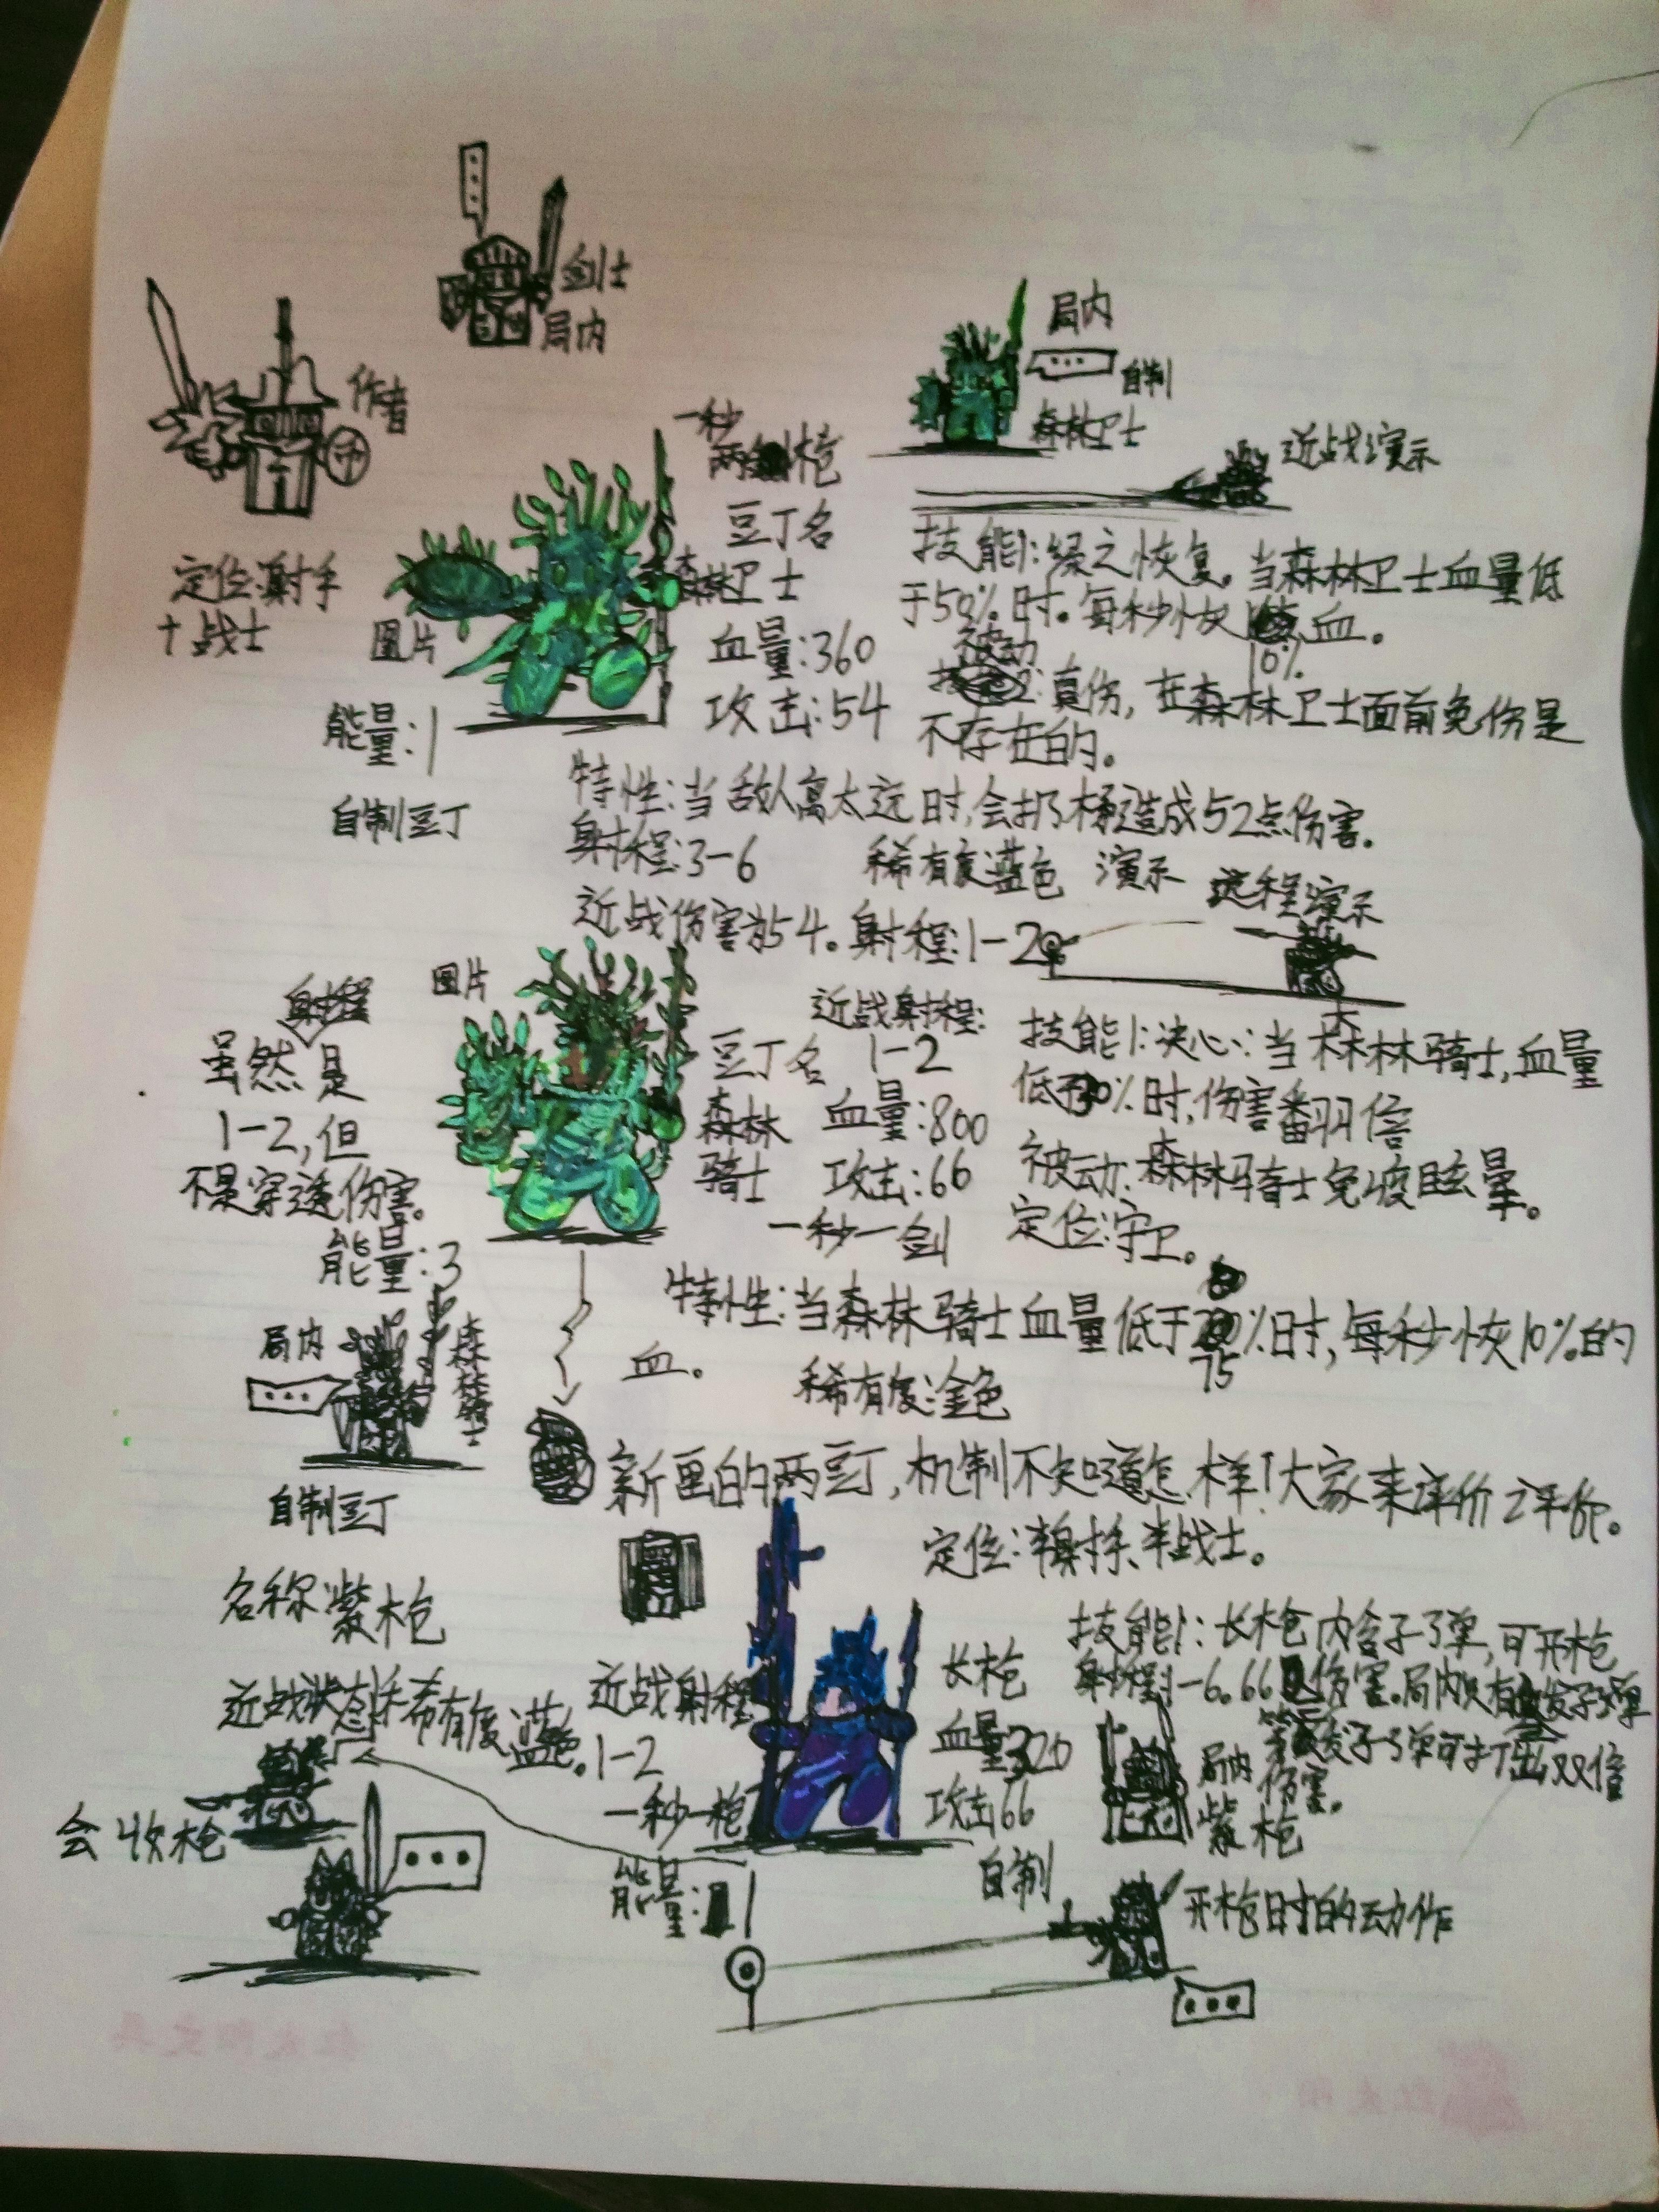 剑士
局内
作者
局内
自制
森林卫士
近战演示
一秒
两枪
豆丁名
森林卫士
血量:360
攻击:54
定位:射手
+战士
图片
能量:1
自制豆丁
技能1:绿之恢复。当森林卫士血量低
于50%时。每秒恢复10%血。
被动:真伤,在森林卫士面前免伤是
不存在的。
特性:当敌人离太远时,会扔矛造成52点伤害.
射程:3-6
稀有度:蓝色
演示
远程演示
近战伤害为54。射程:1-2
图片
射程
虽然是
1-2,但
不是穿透伤害。
能量:3
近战射程:
1-2
豆丁名
森林
骑士
血量:800
攻击:66
一秒一剑
技能1:决心:当森林骑士,血量
低于30%时,伤害翻1倍
被动:森林骑士免疫眩晕。
定位:守卫。
特性:当森林骑士血量低于75%时,每秒恢10%的
血。
稀有度:金色
局内
森林骑士
自制豆丁
新画的两豆丁,机制不知道怎样!大家来评价评价。
定位:半射手、半战士。
名称:紫枪
近战状态
稀有度:蓝色。
近战射程
1-2
一秒一枪
能量:1
会收枪
长枪
血量320
攻击66
自制
技能1:长枪内含子弹,可开枪
射程1-6.66伤害.局内只有发子弹
发子弹可打出双倍
伤害。
局内
紫枪
开枪时的动作